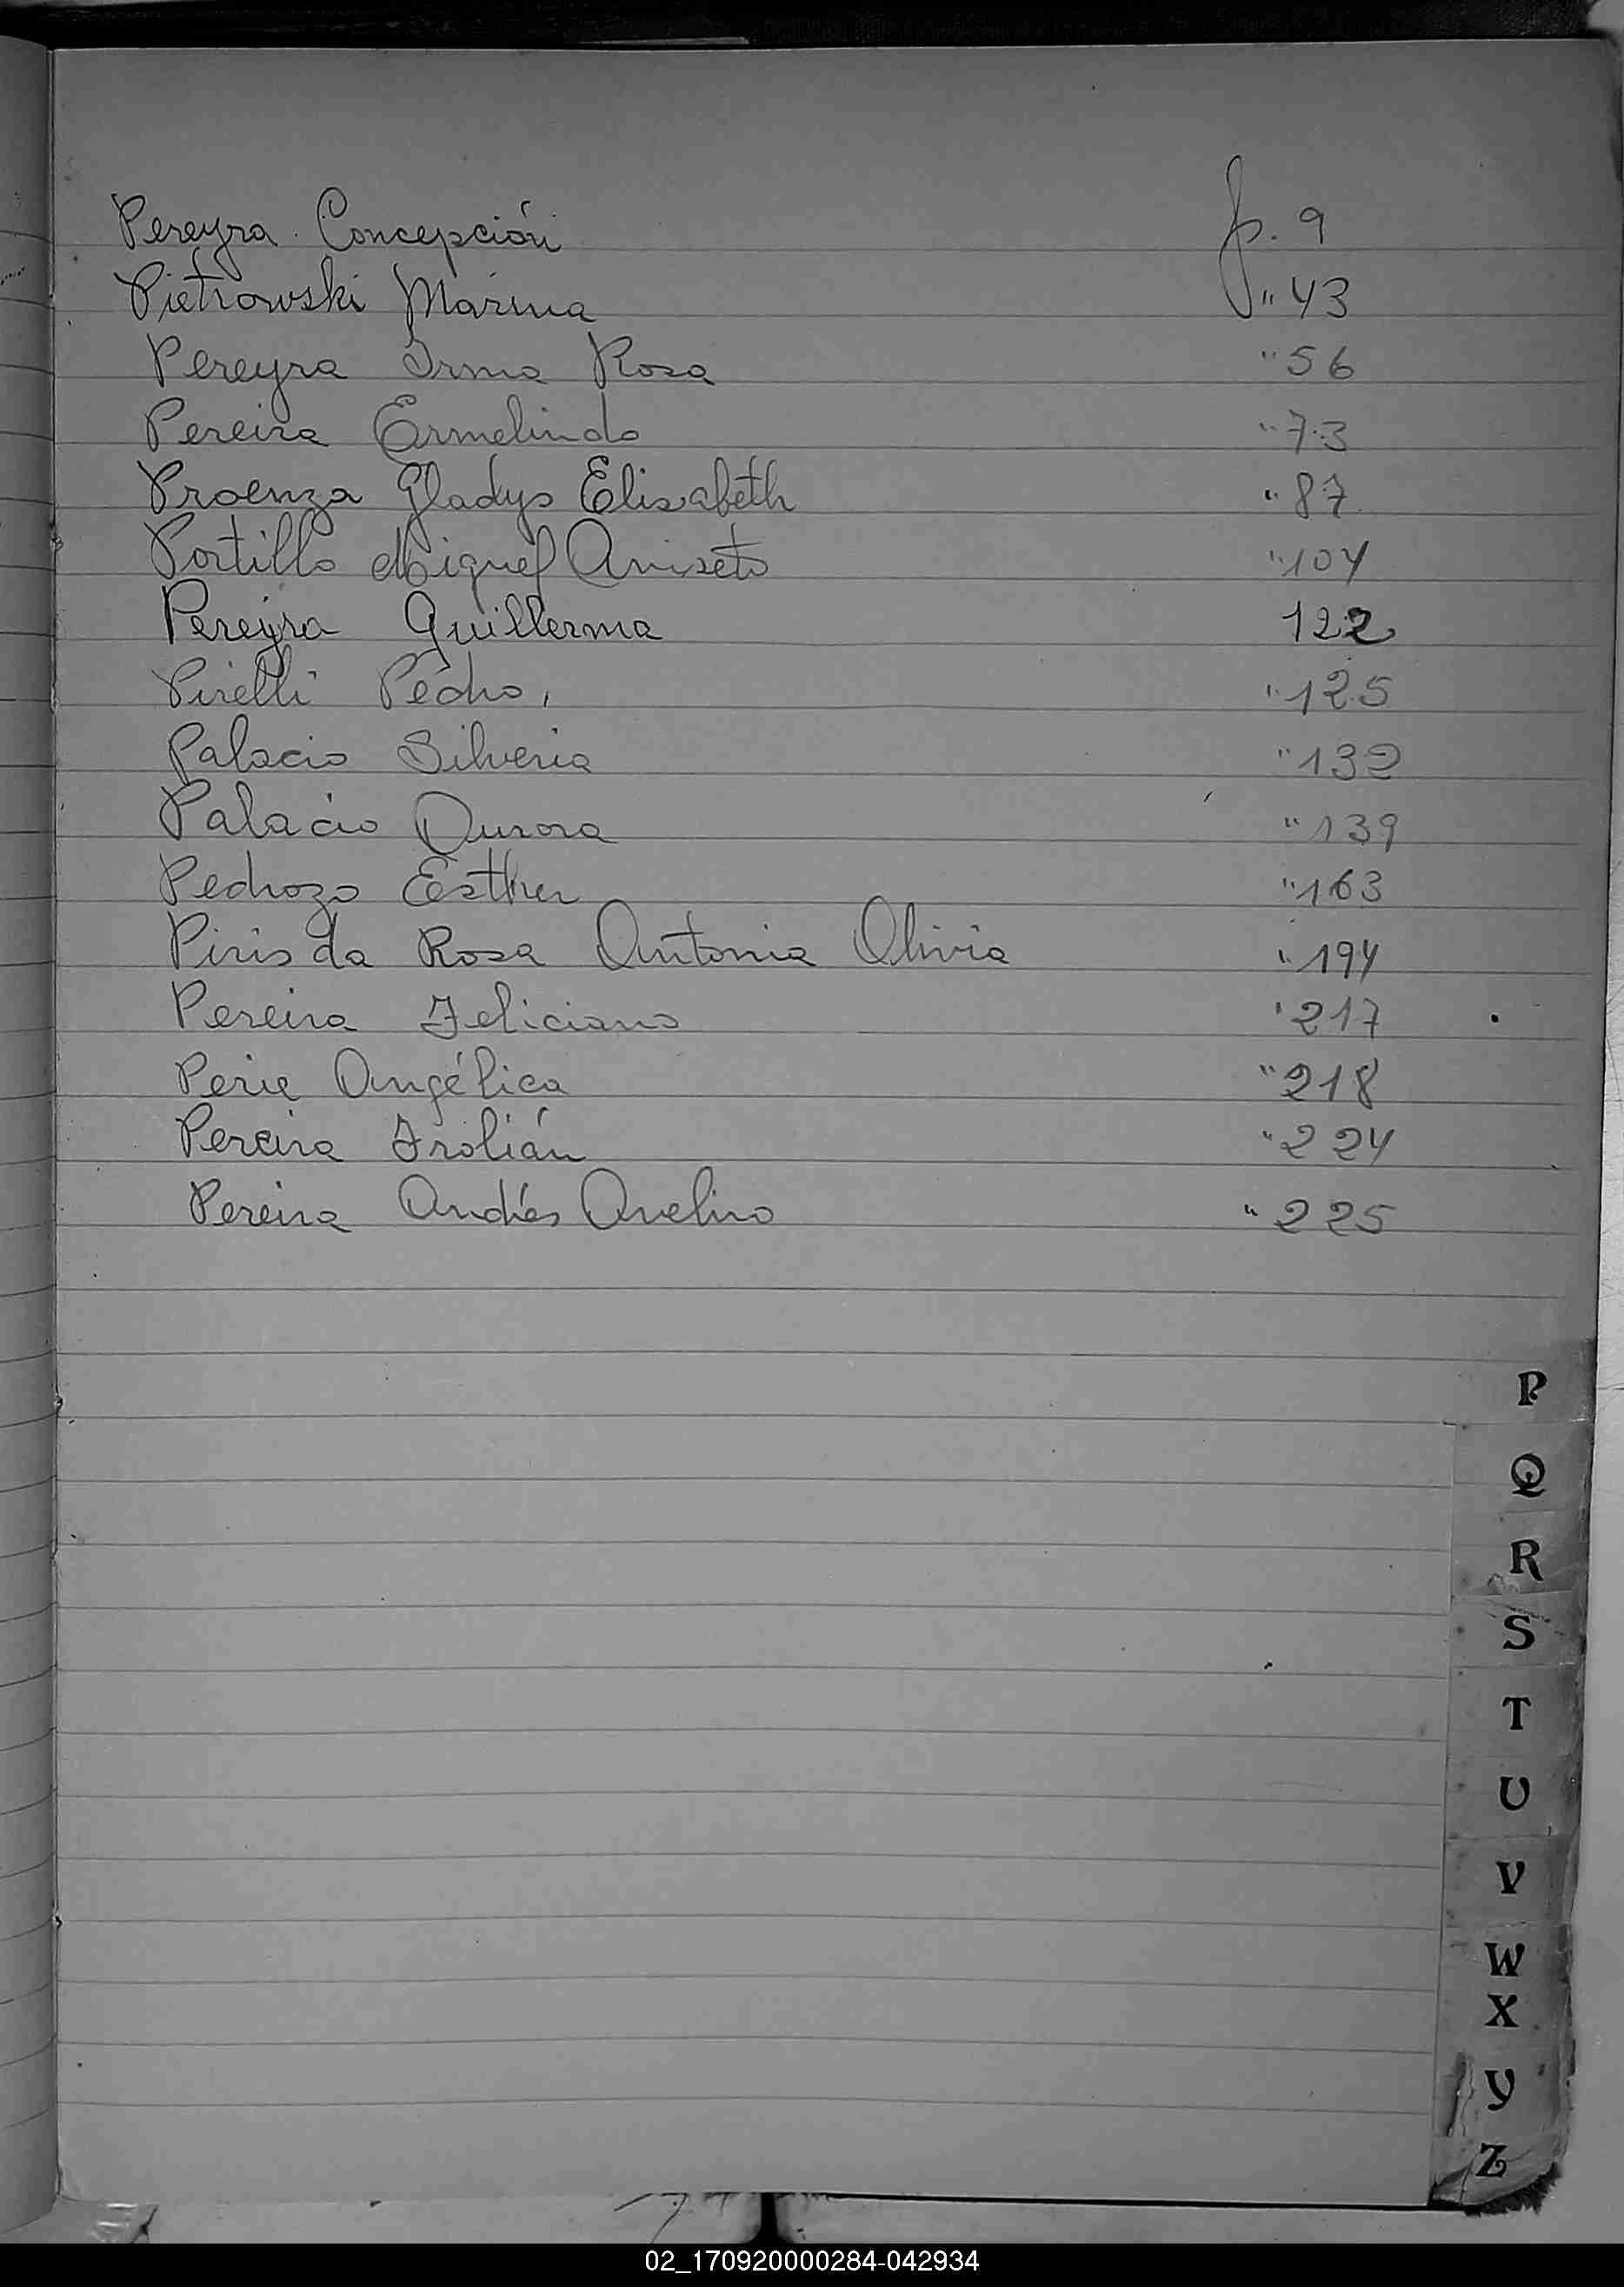 Pereyra Concepción f. 9
Pietrowski Marina " 43
Pereyra Irma Rosa " 56
Pereira Ermelindo " 73
Proenza Gladys Elisabeth " 87
Portillo Miguel Aniseto " 104
Pereyra Guillerma 122
Pirelli Pedro, " 125
Palacio Silveria " 132
Palacio Aurora " 139
Pedrozo Esther " 163
Piris da Rosa Antonia Olivia " 194
Pereira Feliciano " 217
Perie Angélica " 218
Pereira Frolián " 224
Pereira Andrés Avelino " 225
P
Q
R
S
T
U
V
W
X
Y
Z
02_170920000284-042934